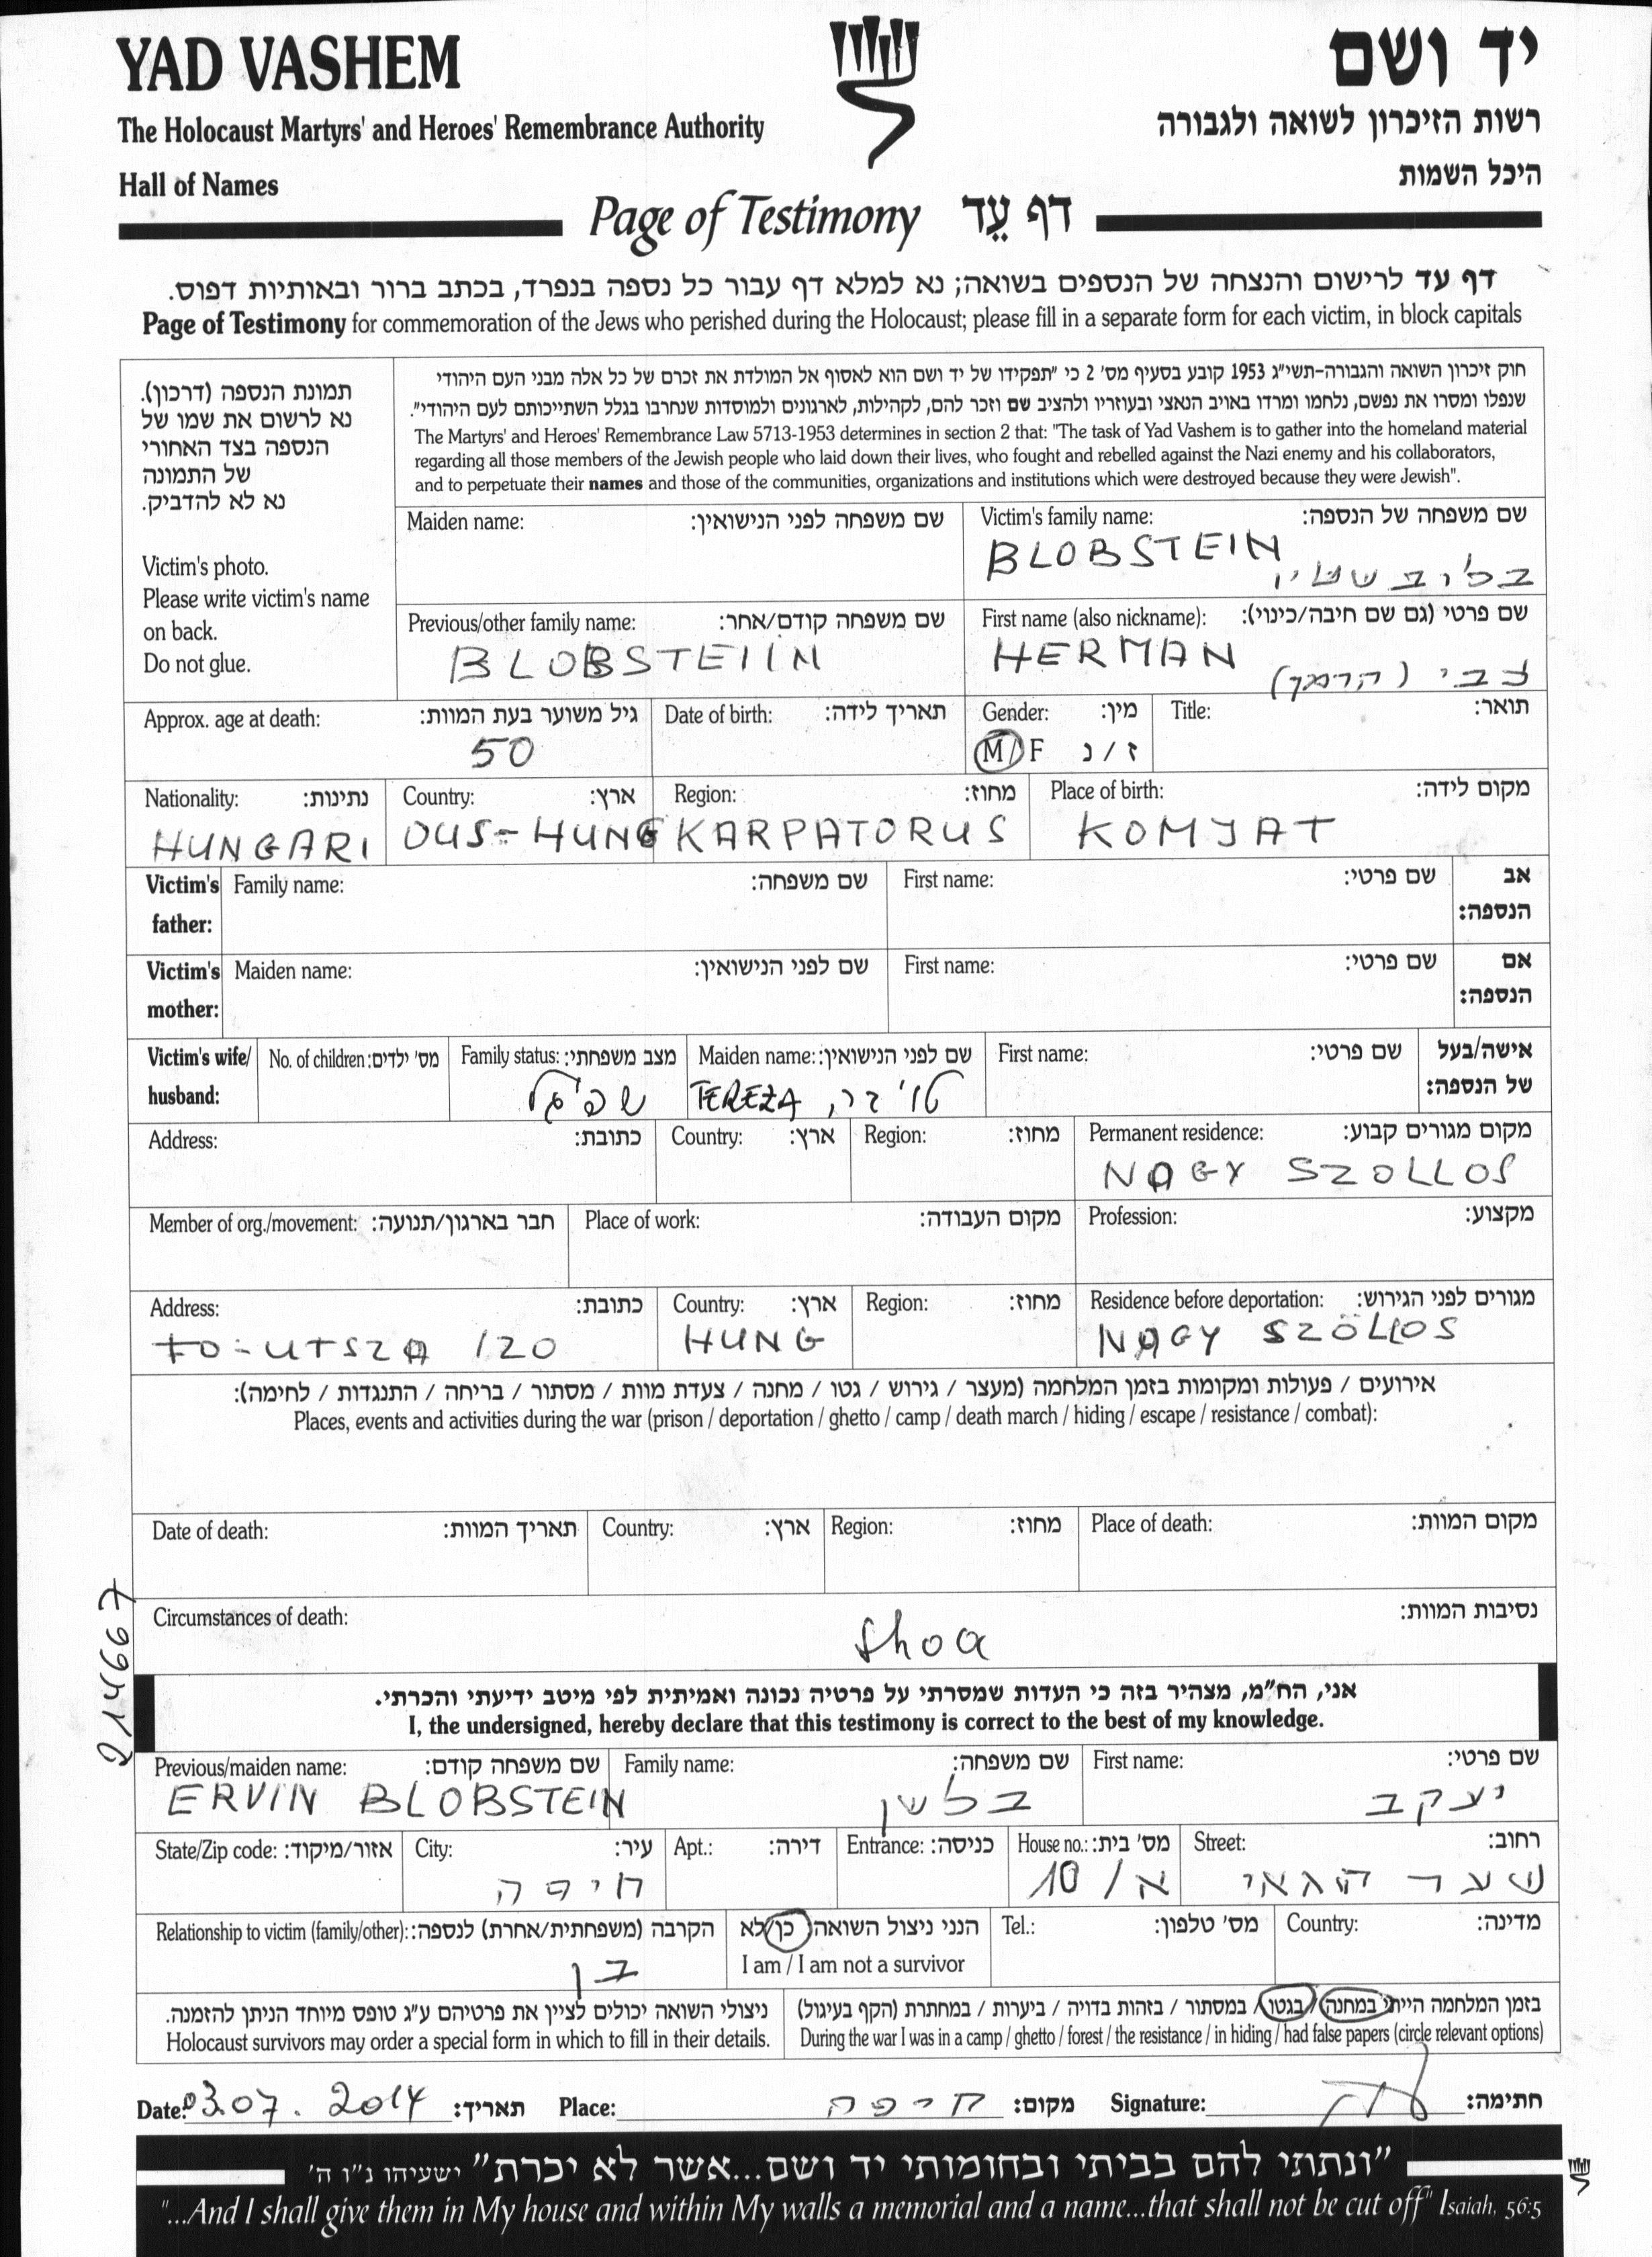 YAD VASHEM
יד ושם
The Holocaust Martyrs' and Heroes' Remembrance Authority
רשות הזיכרון לשואה ולגבורה
Hall of Names
היכל השמות
Page of Testimony דף עֵד
דף עד לרישום והנצחה של הנספים בשואה; נא למלא דף עבור כל נספה בנפרד, בכתב ברור ובאותיות דפוס.
Page of Testimony for commemoration of the Jews who perished during the Holocaust; please fill in a separate form for each victim, in block capitals
תמונת הנספה (דרכון).
נא לרשום את שמו של
הנספה בצד האחורי
של התמונה
נא לא להדביק.
Victim's photo.
Please write victim's name
on back.
Do not glue.
חוק זיכרון השואה והגבורה-תשי"ג 1953 קובע בסעיף מס' 2 כי "תפקידו של יד ושם הוא לאסוף אל המולדת את זכרם של כל אלה מבני העם היהודי
שנפלו ומסרו את נפשם, נלחמו ומרדו באויב הנאצי ובעוזריו ולהציב שם וזכר להם, לקהילות, לארגונים ולמוסדות שנחרבו בגלל השתייכותם לעם היהודי".
The Martyrs' and Heroes' Remembrance Law 5713-1953 determines in section 2 that: "The task of Yad Vashem is to gather into the homeland material
regarding all those members of the Jewish people who laid down their lives, who fought and rebelled against the Nazi enemy and his collaborators,
and to perpetuate their names and those of the communities, organizations and institutions which were destroyed because they were Jewish".
Maiden name: שם משפחה לפני הנישואין:
Victim's family name: שם משפחה של הנספה:
BLOBSTEIN
בלובשטיין
Previous/other family name: שם משפחה קודם/אחר:
BLOBSTEIIN
First name (also nickname): שם פרטי (גם שם חיבה/כינוי):
HERMAN
צבי (הרמן)
Approx. age at death: גיל משוער בעת המוות:
50
Date of birth: תאריך לידה:
Gender: מין:
M/F ז/נ
Title: תואר:
Nationality: נתינות:
HUNGARI
Country: ארץ:
OUS-HUNG
Region: מחוז:
KARPATORUS
Place of birth: מקום לידה:
KOMJAT
Victim's father: Family name: שם משפחה:
First name: שם פרטי:
אב הנספה:
Victim's mother: Maiden name: שם לפני הנישואין:
First name: שם פרטי:
אם הנספה:
Victim's wife/ husband:
No. of children: מס' ילדים:
Family status: מצב משפחתי:
שפיגל
Maiden name: שם לפני הנישואין:
TEREZA,
First name: שם פרטי:
אישה/בעל של הנספה:
Address: כתובת:
Country: ארץ:
Region: מחוז:
Permanent residence: מקום מגורים קבוע:
NAGY SZOLLOS
Member of org./movement: חבר בארגון/תנועה:
Place of work: מקום העבודה:
Profession: מקצוע:
Address: כתובת:
FO-UTSZA 120
Country: ארץ:
HUNG
Region: מחוז:
Residence before deportation: מגורים לפני הגירוש:
NAGY SZÖLLOS
אירועים / פעולות ומקומות בזמן המלחמה (מעצר / גירוש / גטו / מחנה / צעדת מוות / מסתור / בריחה / התנגדות / לחימה):
Places, events and activities during the war (prison / deportation / ghetto / camp / death march / hiding / escape / resistance / combat):
Date of death: תאריך המוות:
Country: ארץ:
Region: מחוז:
Place of death: מקום המוות:
Circumstances of death: נסיבות המוות:
Shoa
214667
אני, הח"מ, מצהיר בזה כי העדות שמסרתי על פרטיה נכונה ואמיתית לפי מיטב ידיעתי והכרתי.
I, the undersigned, hereby declare that this testimony is correct to the best of my knowledge.
Previous/maiden name: שם משפחה קודם:
ERVIN BLOBSTEIN
Family name: שם משפחה:
בלשן
First name: שם פרטי:
יעקב
State/Zip code: אזור/מיקוד:
City: עיר:
חיפה
Apt.: דירה:
Entrance: כניסה:
House no.: מס' בית:
10/א
Street: רחוב:
שער הגאי
Relationship to victim (family/other): הקרבה (משפחתית/אחרת) לנספה:
בן
הנני ניצול השואה כן/לא
I am / I am not a survivor
Tel.: מס' טלפון:
Country: מדינה:
ניצולי השואה יכולים לציין את פרטיהם ע"ג טופס מיוחד הניתן להזמנה.
Holocaust survivors may order a special form in which to fill in their details.
בזמן המלחמה הייתי במחנה / בגטו / במסתור / בזהות בדויה / ביערות / במחתרת (הקף בעיגול)
During the war I was in a camp / ghetto / forest / the resistance / in hiding / had false papers (circle relevant options)
Date: 03.07.2014 תאריך:
Place: חיפה מקום:
Signature: חתימה:
"ונתתי להם בביתי ובחומותי יד ושם...אשר לא יכרת" ישעיהו נ"ו ה'
"...And I shall give them in My house and within My walls a memorial and a name...that shall not be cut off" Isaiah, 56:5